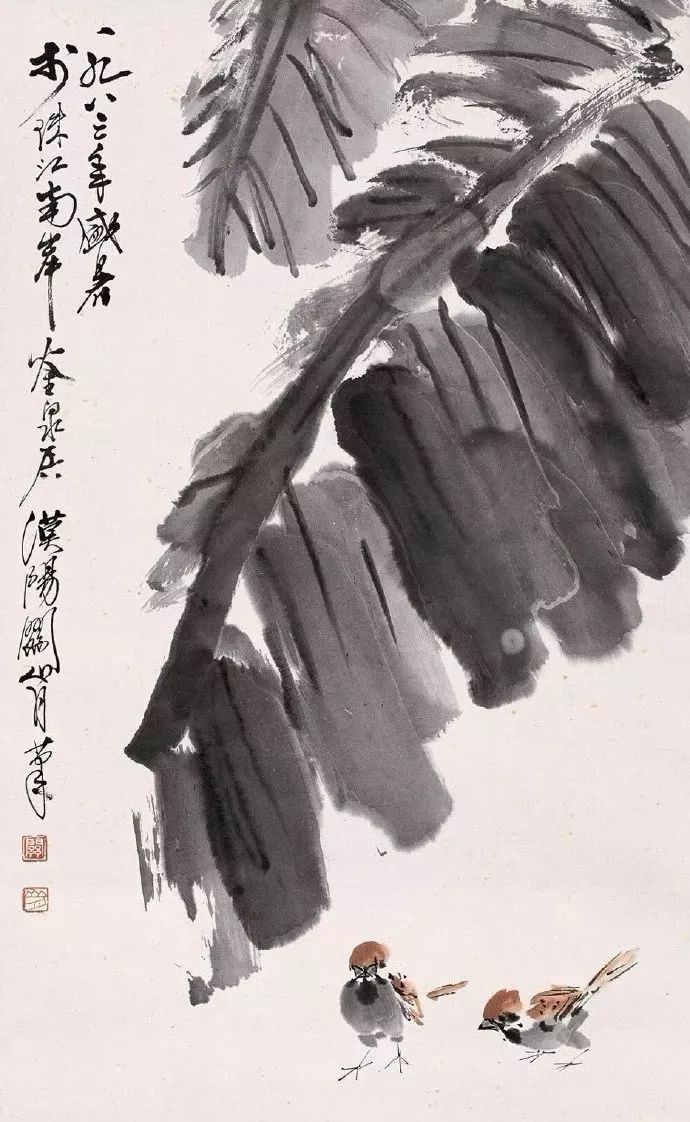 一九八三年盛暑
於珠江南岸鉴泉居漠陽關山月筆
關